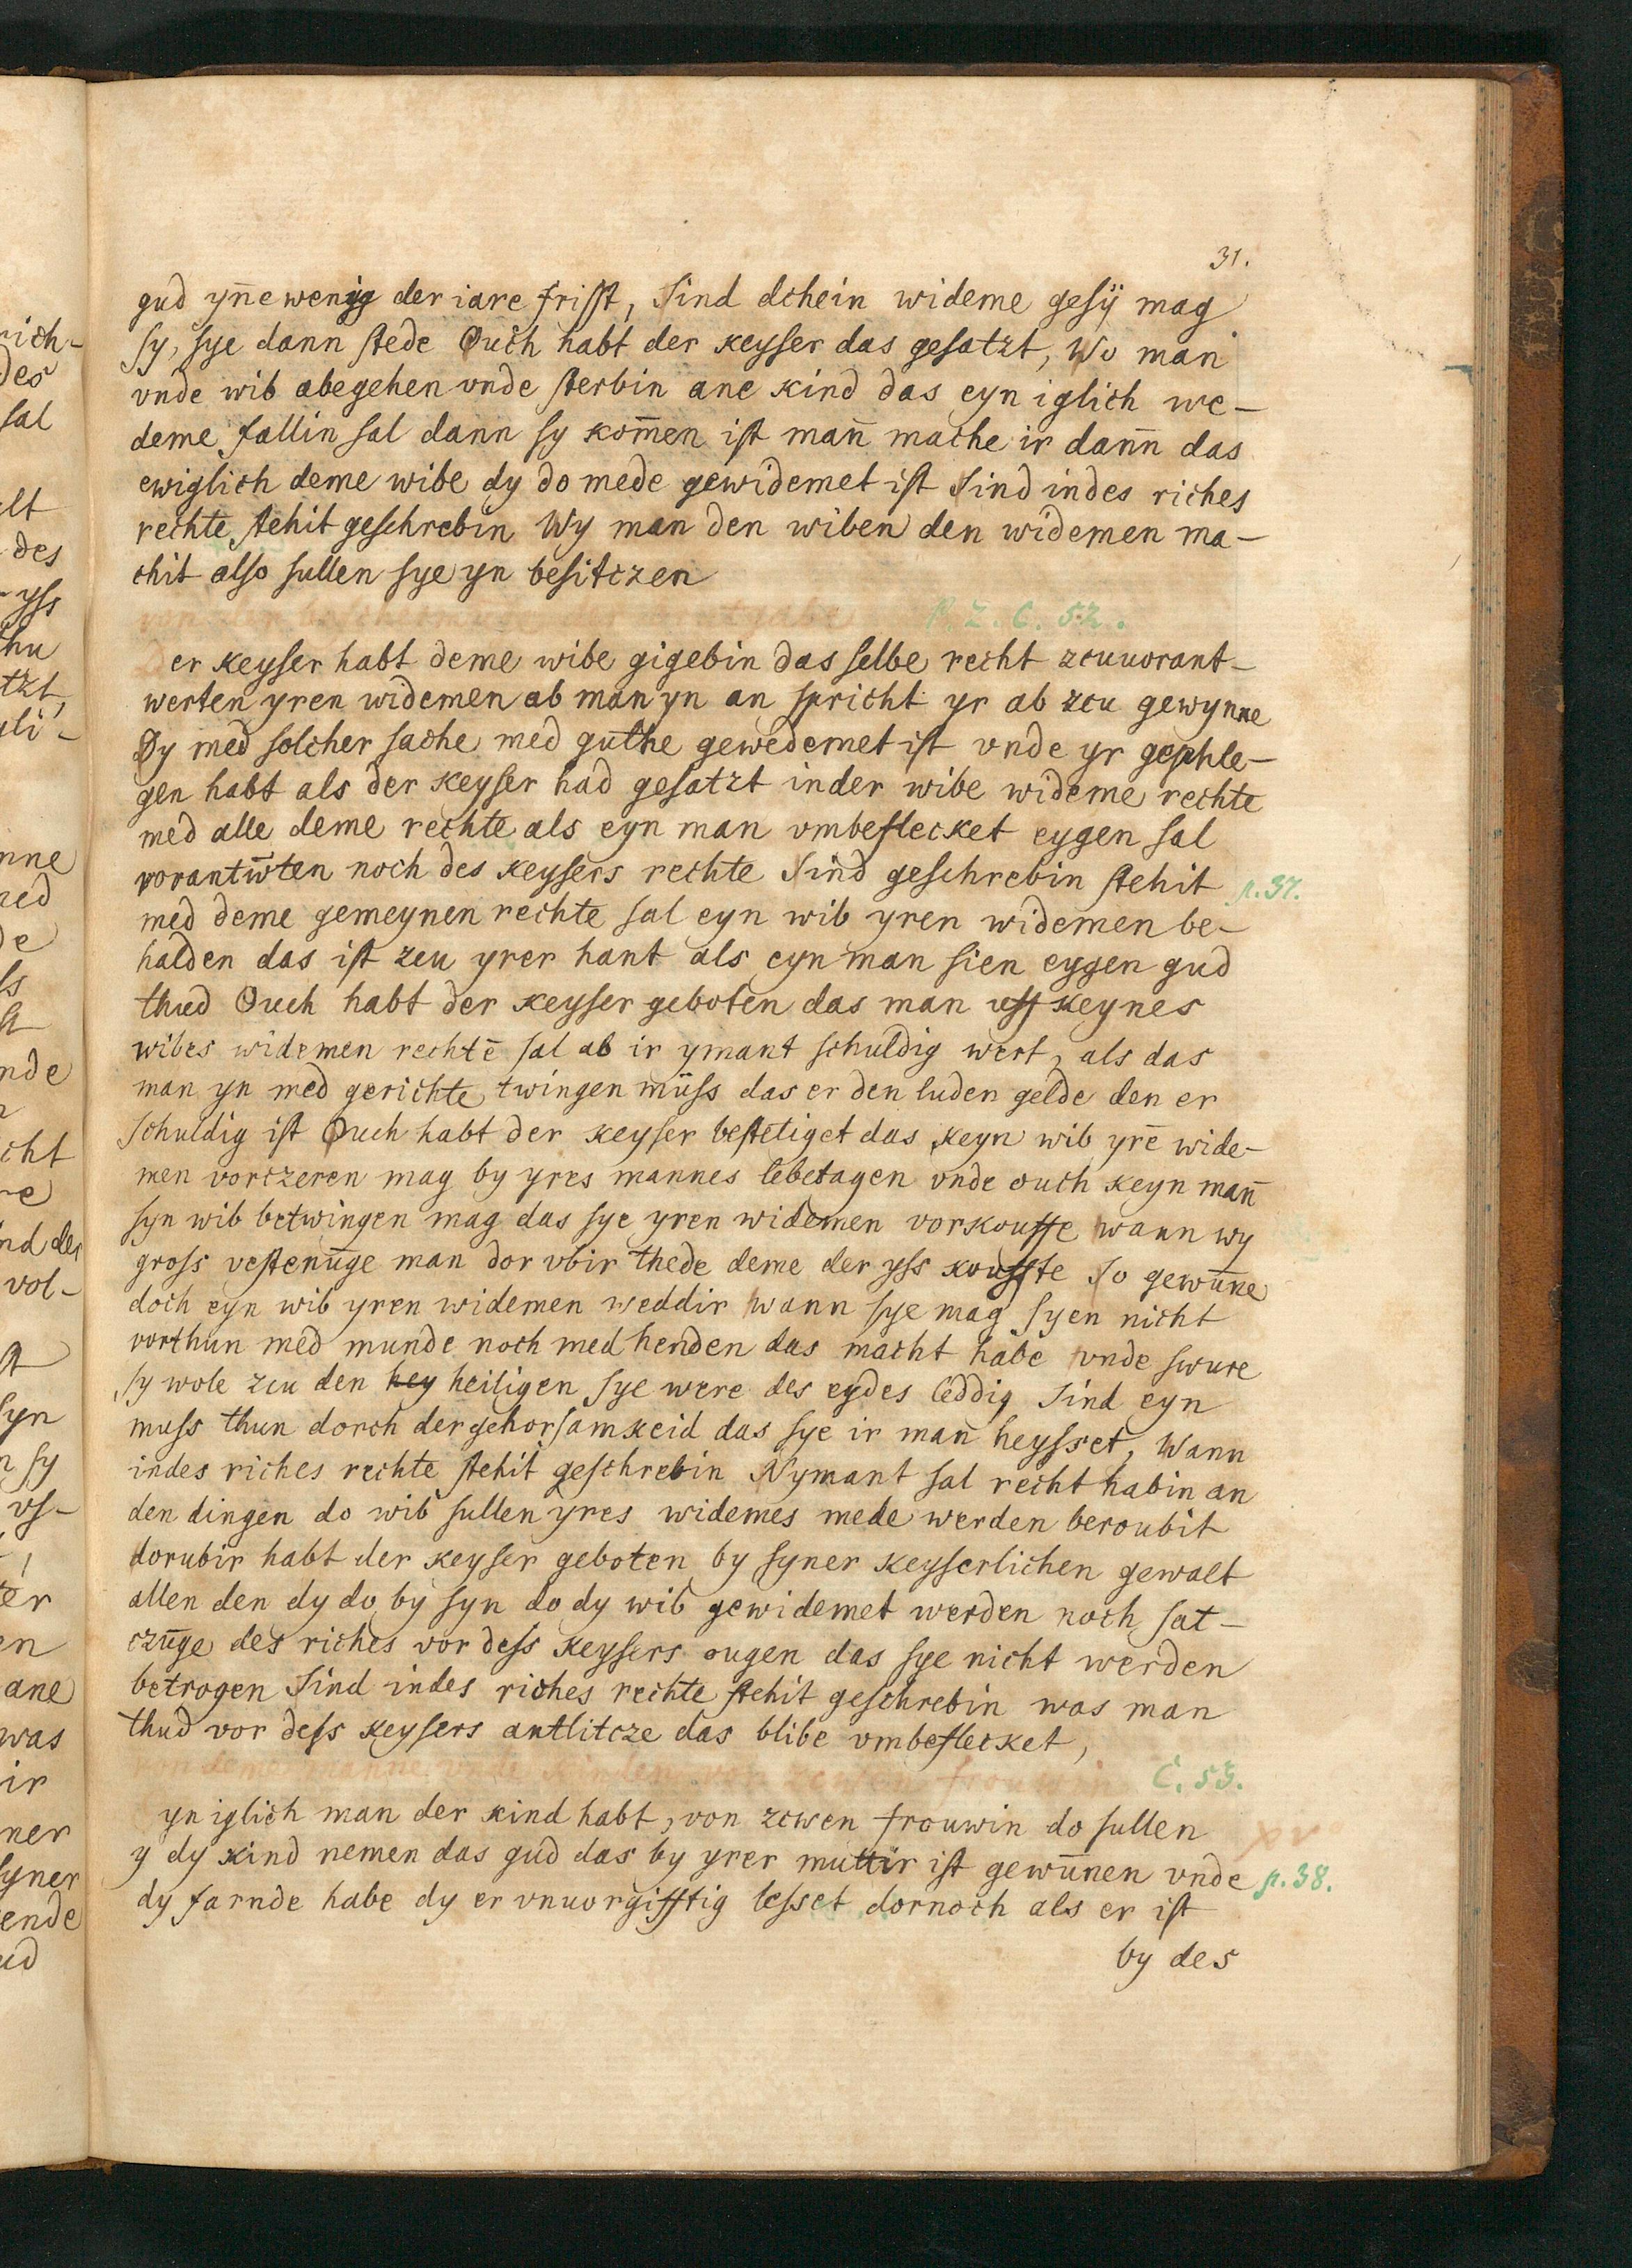 31.
gud yn̄ewenig der iare frisst, Sind dchein wideme gesÿ mag
sy, sye dann stede Ouch habt der keyser das gesatzt, Wo man
vnde wib abegehen vnde sterbin ane kind das eyn iglich we-
deme fallin sal dann sy kom̄en ist man̄ mache ir dan̄n das
ewiglich deme wibe dy do mede gewidemet ist Sind indes riches
rechte stehit geschrebin Wy man den wiben den widemen ma-
chit also sullen sye yn besitczen
P. 2. C. 52.
Der keyser habt deme wibe gigebin das selbe recht zcuuorant-
werten yren widemen ab man yn an spricht yr ab zcu gewynne
Dy med solcher sache med guthe gewedemet ist vnde yr gephle-
gen habt als der keyser had gesatzt inder wibe wideme rechte
med alle deme rechte als eyn man vmbeflecket eygen sal
vorantw̄ten noch des keysers rechte Sind geschrebin stehit
p. 37.
med deme gemeynen rechte sal eyn wib yren widemen be-
halden das ist zcu yrer hant als eyn man sien eygen gud
thud Ouch habt der keyser geboten das man uff keynes
wibes widemen rechtē sal ab ir ymant schuldig wert, als das
man yn med gerichte twingen müss das er den luden gelde den er
schuldig ist Ouch habt der keyser bestetiget das keyn wib yrē wide-
men vorczeren mag by yres mannes lebetagen vnde ouch keyn man̄
syn wib betwingen mag das sye yren widemen vorkouffe wann wy
gross vestenūge man dor vbir thede deme der yss kouffte So gewūne
doch eyn wib yren widemen weddir wann sye mag syen nicht
vorthun med munde noch med henden das macht habe vnde swure
sy wole zcu den hey heiligen sye were des eydes leddig Sind eyn
muss thun dorch der gehorsamkeid das sye ir man̄ heysset, Wann
indes riches rechte stehit geschrebin Nymant sal recht habin an
den dingen do wib sullen yres widemes mede werden beroubit
dorubir habt der keyser geboten by syner keyserlichen gewalt
allen den dy do by syn do dy wib gewidemet werden noch sat-
czūge des riches vor dess keysers ougen das sye nicht werden
betrogen Sind indes riches rechte stehit geschrebin was man
thud vor dess keysers antlitcze das blibe vmbeflecket,
C. 53.
yn iglich man der kind habt, von zcwen frouwin do sullen
y dy kind nemen das gud das by yrer muttir ist gewūnen vnde
p. 38.
dy farnde habe dy er vnuorgifftig lesset dornoch als er ist
by des